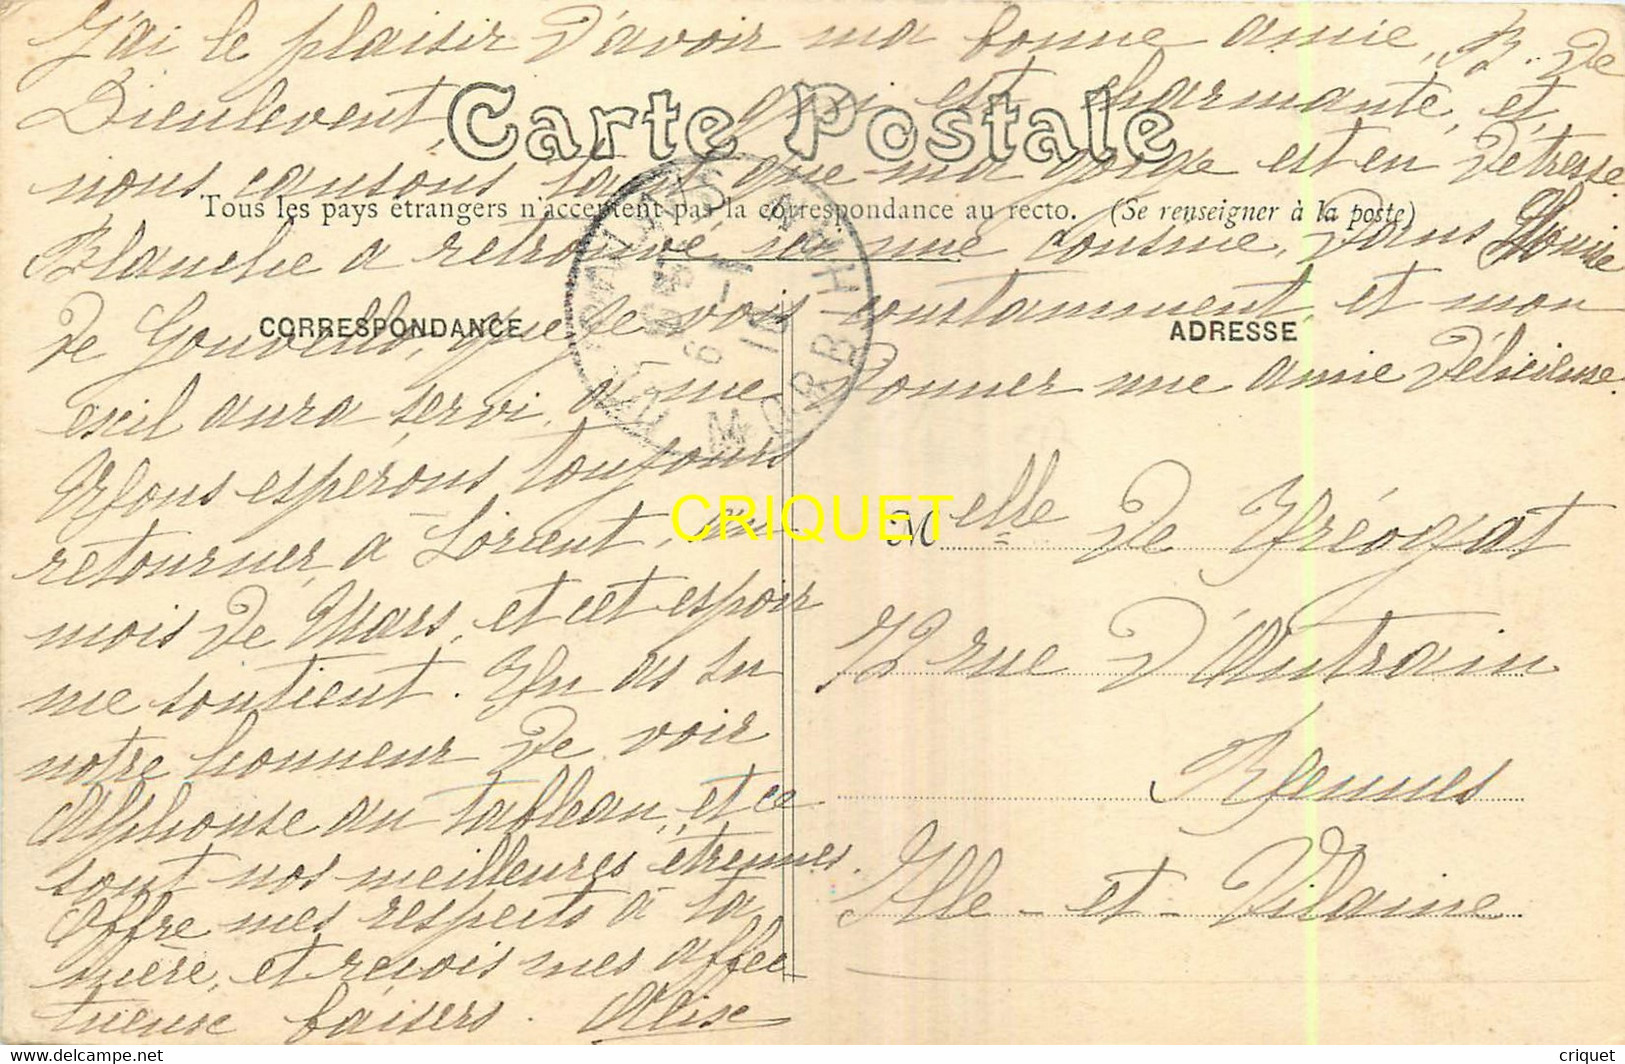 J'ai le plaisir d'avoir ma bonne amie, B. de
Dieulevent, qui est charmante, et
Carte Postale
nous causons tant que ma gorge est en détresse
Tous les pays étrangers n'acceptent pas la correspondance au recto. (Se renseigner à la poste)
Blanche a retrouvé, ici une cousine, dans Louise
de Gouvello, que je vois constamment, et mon
CORRESPONDANCE
ADRESSE
exil aura servi, à me donner une amie délicieuse.
Nous espérons toujours
retourner, à Lorient, au
mois de Mars, et cet espoir
me soutient. Tu as su
notre honneur de voir
Alphonse au tableau, et ce
sont nos meilleures étrennes.
Offre mes respects à ta
mère, et reçois mes affec
tueuse baisers. Alise
MORBIHAN
CRIQUET
Melle de Tréogat
72 rue d'Antrain
Rennes
Ille-et-Vilaine
http://criquet.delcampe.net
criquet